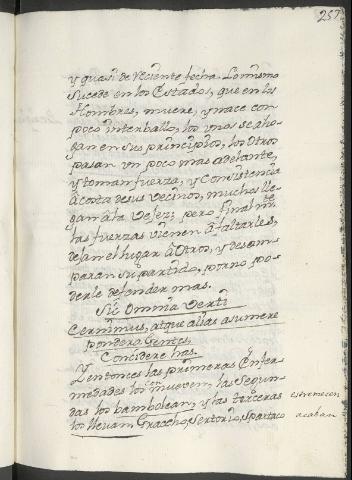 257
y quasi de reciente fecha. Lo mismo
sucede en los Estados, que en los
Hombres, muere, y nace con
poco interballo, los unos se aho-
gan en sus principios, los Otros
pasan un poco mas adelante,
y toman fuerza, y Consistencia
à costa de sus vecinos, muchos lle-
gan à la Vejez; pero final.mte
las fuerzas vienen à faltarles,
dejan el lugar à Otros, y desam-
paran su partido, por no po-
derle defender mas.
Sic Omnia verti
Cernimus, atque alias asumere
pondera Gentes,
Concidere has.
Y entonces las primeras Enfer-
medades los mueven, las Segun-
das los bambolean, y las terceras estremecen
los llevan Graccho, Sertorio, Spartaco acaban